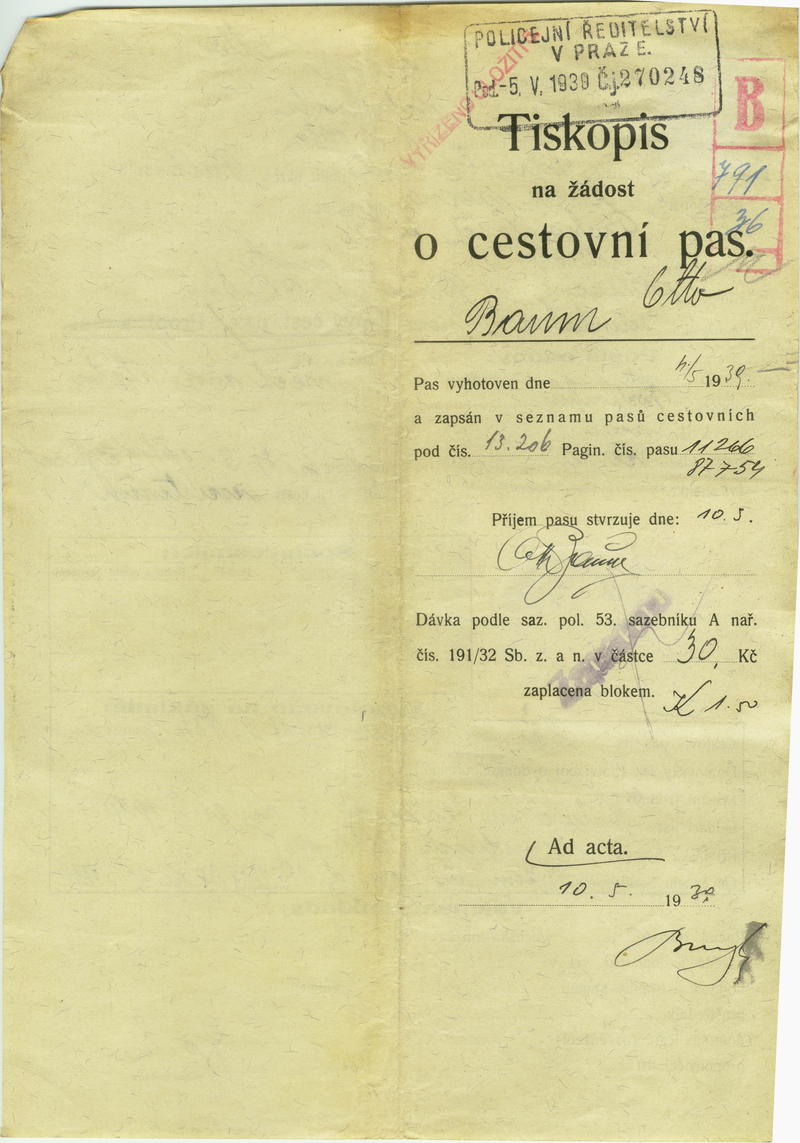 POLICEJNÍ ŘEDITELSTVÍ
V PRAZE.
Pod. -5. V. 1939 Čj. 270248
VYŘÍZENO ULOŽITI
B
791
36
Tiskopis
na žádost
o cestovní pas.
Baum Otto
Pas vyhotoven dne 4/5 1939.
a zapsán v seznamu pasů cestovních
pod čís. 13.206 Pagin. čís. pasu 11266
87754
Příjem pasu stvrzuje dne: 10.5.
Otto Baum
Dávka podle saz. pol. 53. sazebníku A nař.
čís. 191/32 Sb. z. a n. v částce 30. Kč
zaplacena blokem. K 1.50
Zapraveno
Ad acta.
10. 5. 1939